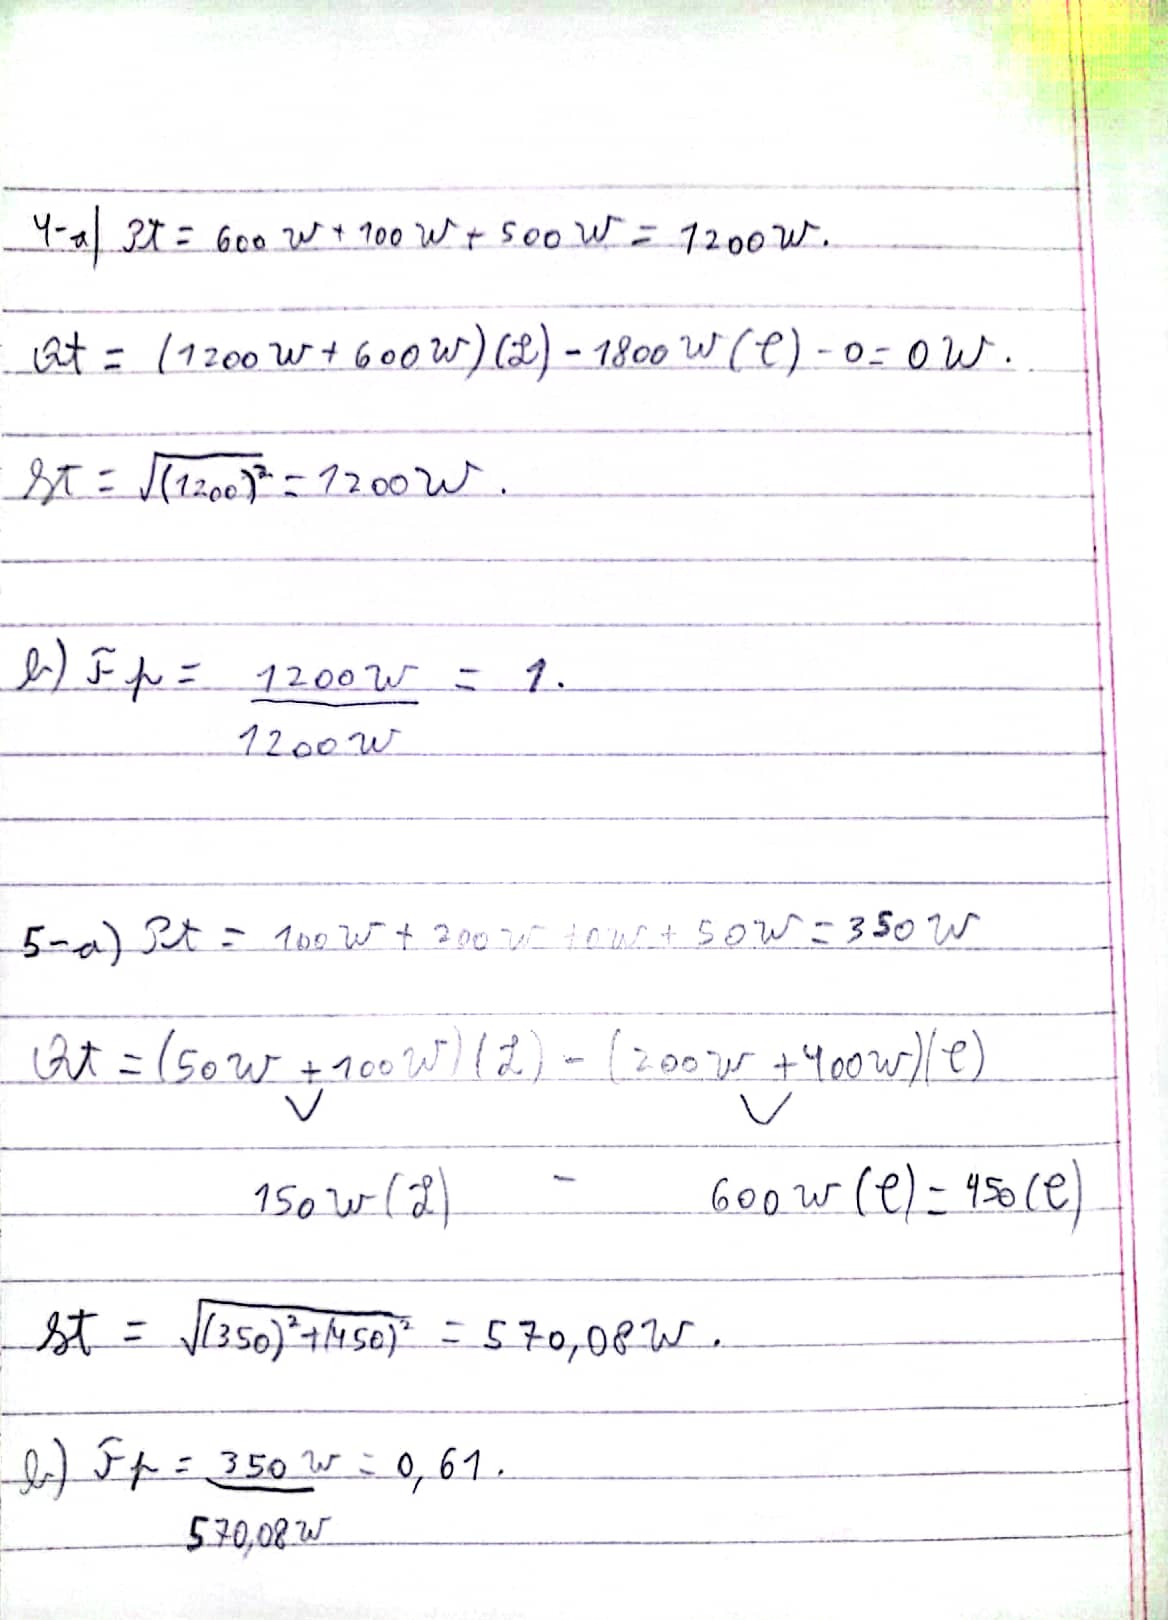 4-a) Pt = 600 W + 100 W + 500 W = 1200 W.
Qt = (1200 W + 600 W)(L) - 1800 W (C) - 0 = 0 W.
St = √(1200)² = 1200 W.
b) Fp = 1200 W = 1.
1200 W
5-a) Pt = 100 W + 200 W + 0 W + 50 W = 350 W
Qt = (50 W + 100 W)(L) - (200 W + 400 W)(C)
150 W (L) - 600 W (C) = 450 (C)
St = √(350)² + (450)² = 570,08 W.
b) Fp = 350 W = 0,61.
570,08 W